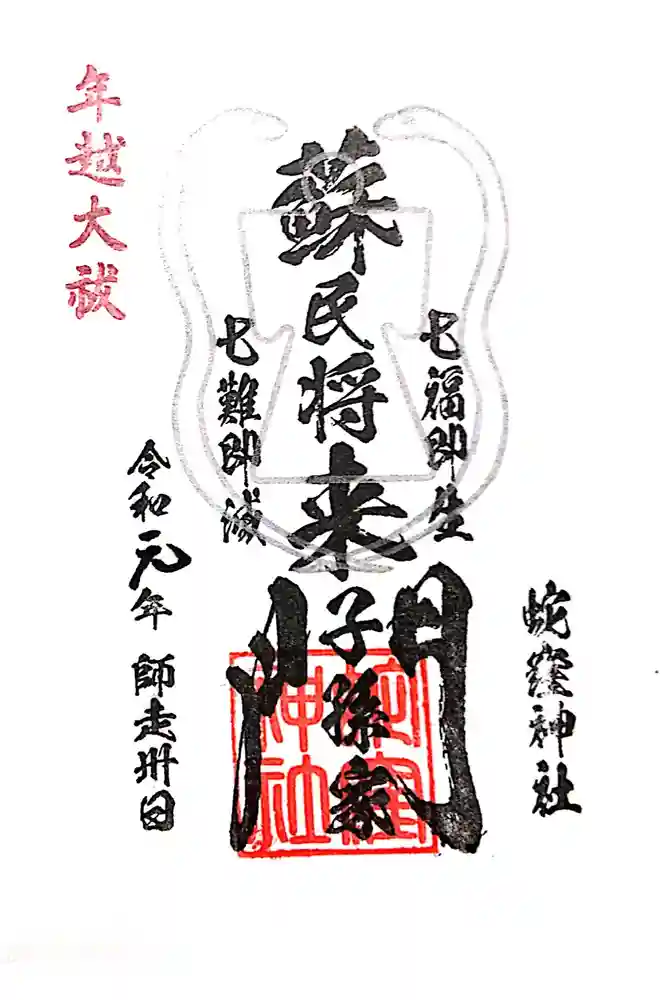 蛇窪神社
七福即生
蘇民将来子孫家門
七難即滅
令和元年 師走卅日
年越大祓
蛇窪
神社